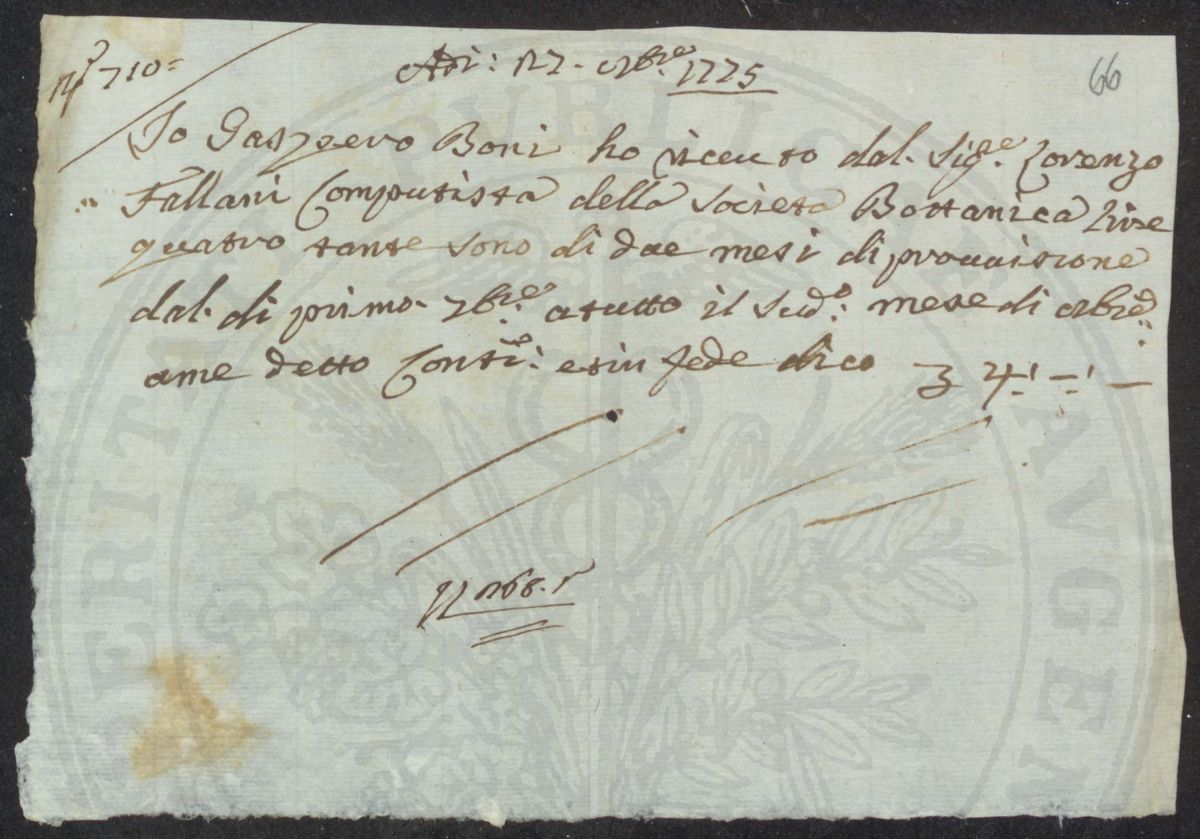 710=
Adi: 17- 1775
66
Io Gaspero Boni ho riceuto dal. Sig.e Lorenzo
Fallani Computista della Societa Bottanica Lire
quatro tante sono di due mesi di prouuisione
dal. di primo- 7bre atutto il Sud.o: mese di
ame detto Conti: et in fede dico 4:-:-
168.
PVBLICAE